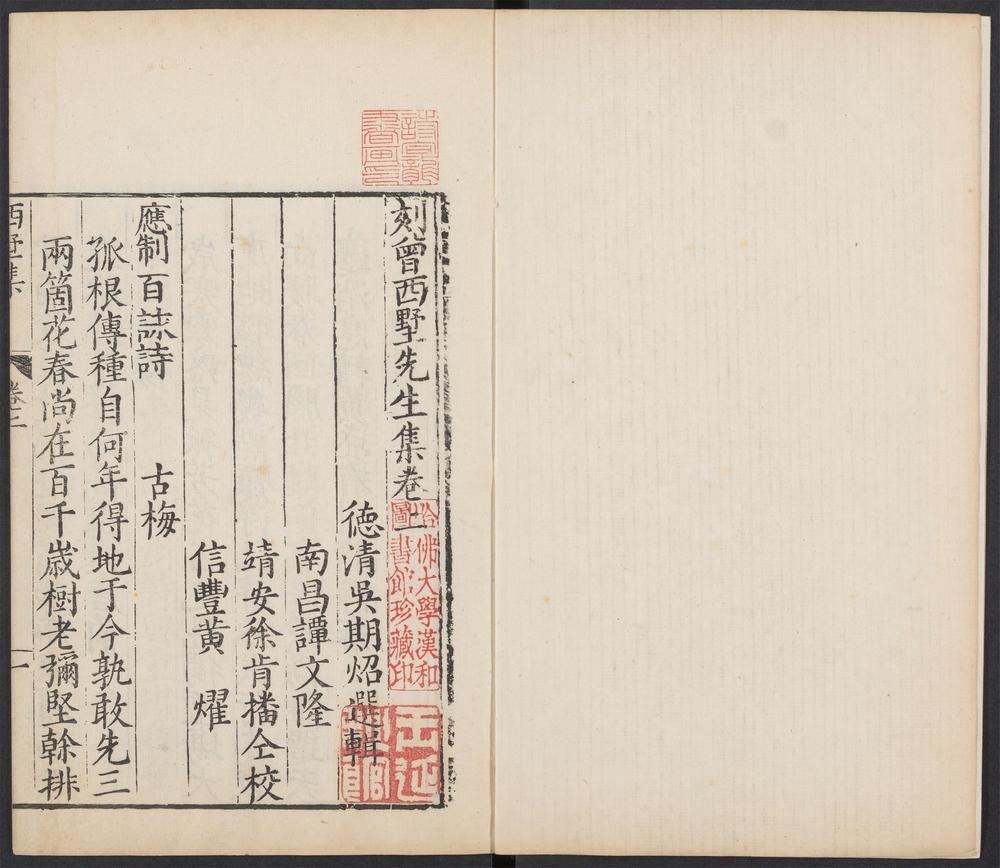 刻曾西墅先生集卷上
德清吳期炤選輯
南昌譚文隆
靖安徐肯播仝校
信豐黃　燿
應制百詠詩　　古梅
孤根傳種自何年得地于今孰敢先三
兩箇花春尚在百千歲樹老彌堅榦排
西墅集　卷上　一
哈佛大學漢和圖書館珍藏印